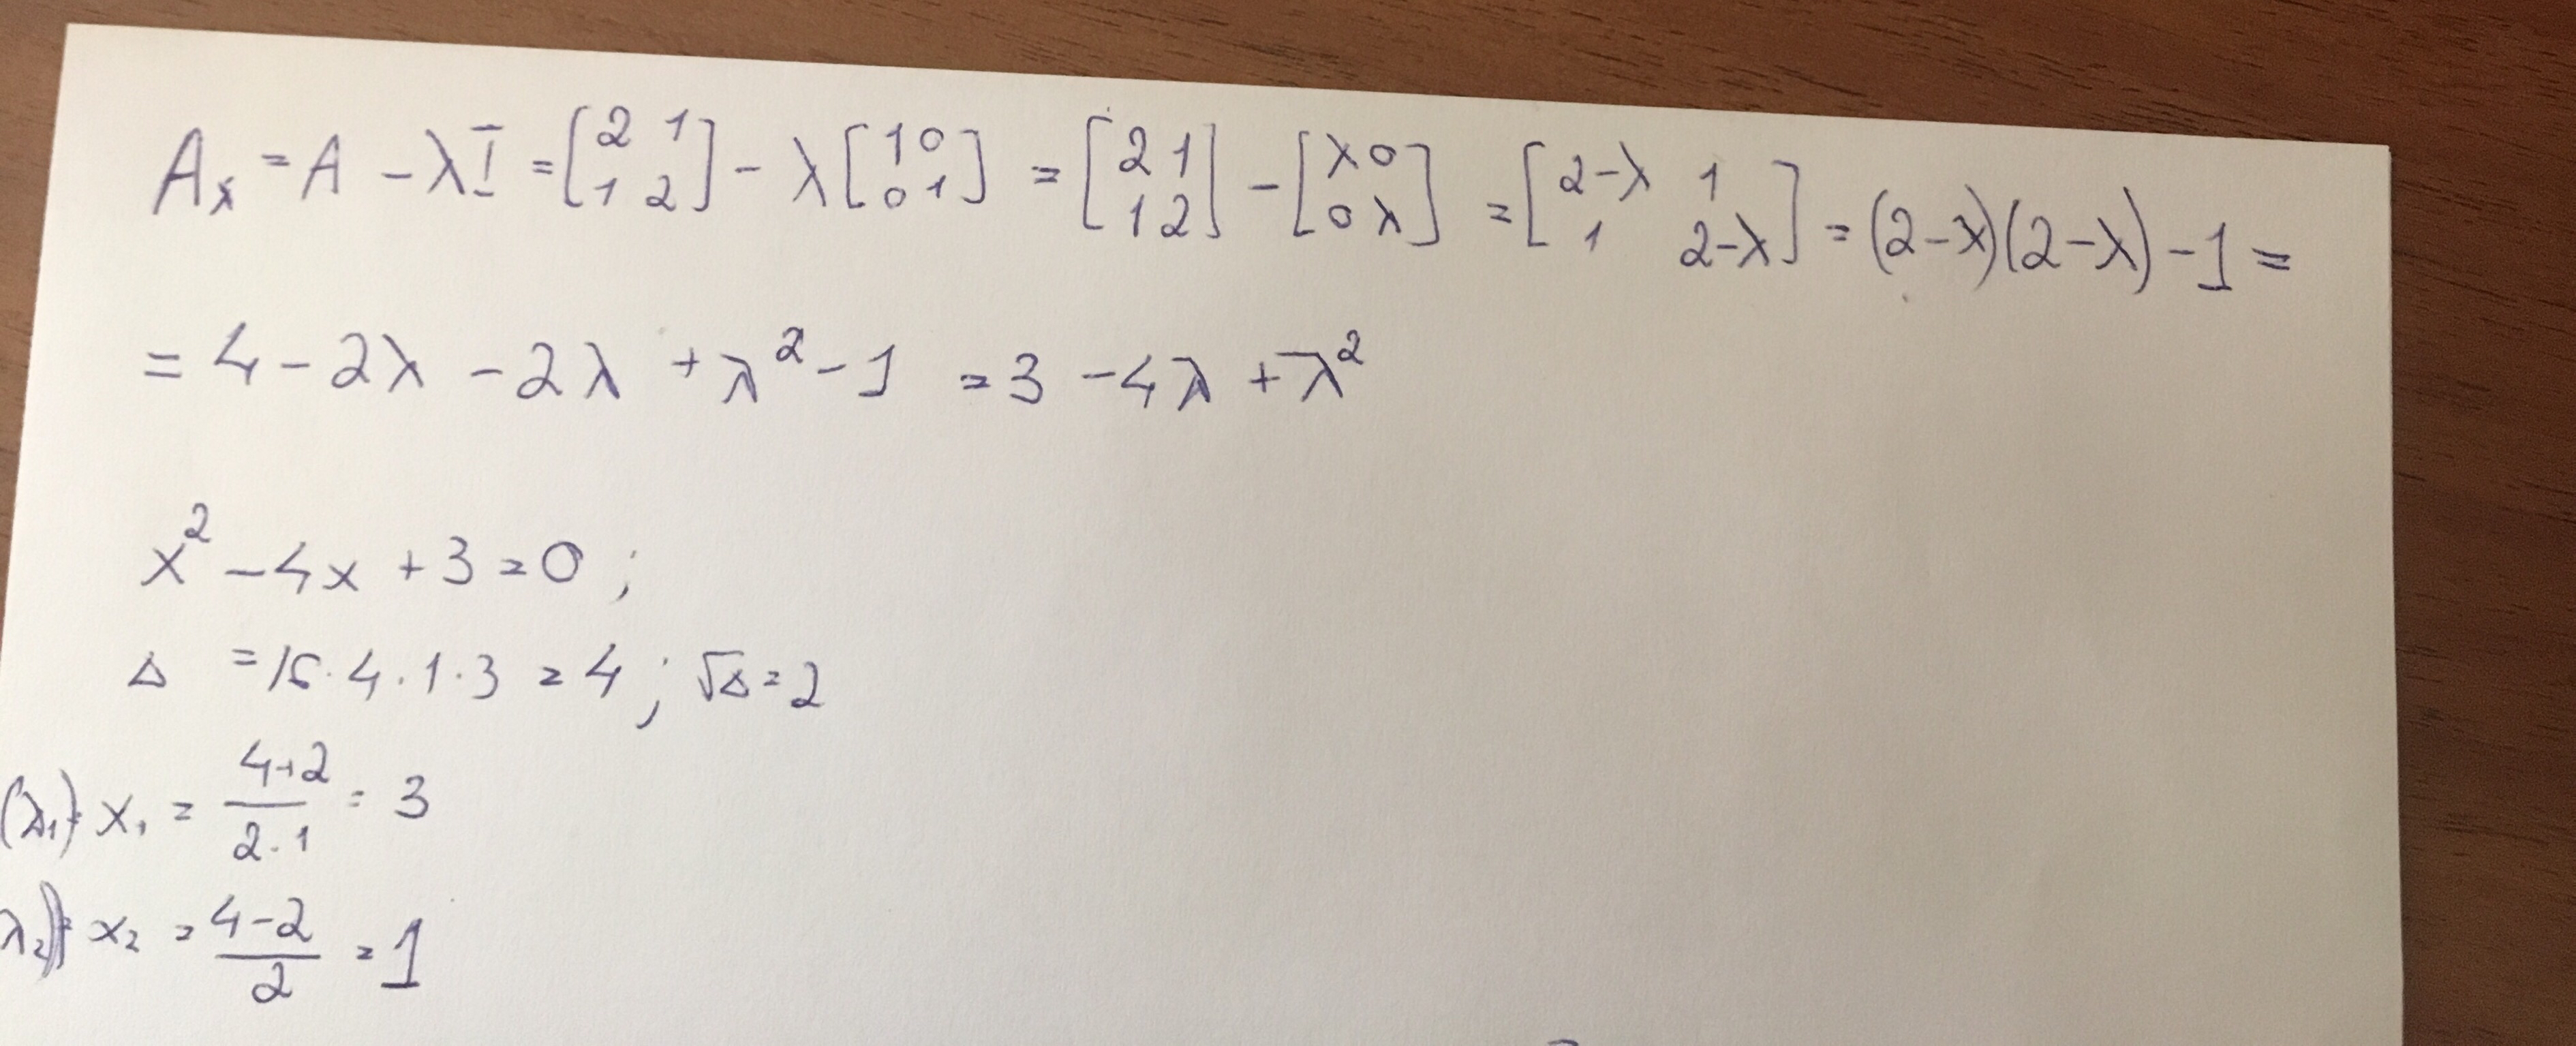 Aₓ = A - λI = [2 1; 1 2] - λ[1 0; 0 1] = [2 1; 1 2] - [λ 0; 0 λ] = [2-λ 1; 1 2-λ] = (2-λ)(2-λ) - 1 =
= 4 - 2λ - 2λ + λ² - 1 = 3 - 4λ + λ²
x² - 4x + 3 = 0 ;
Δ = 16 · 4 · 1 · 3 = 4 ; √Δ = 2
(λ₁) = x₁ = (4+2)/(2·1) = 3
λ₂) = x₂ = (4-2)/2 = 1